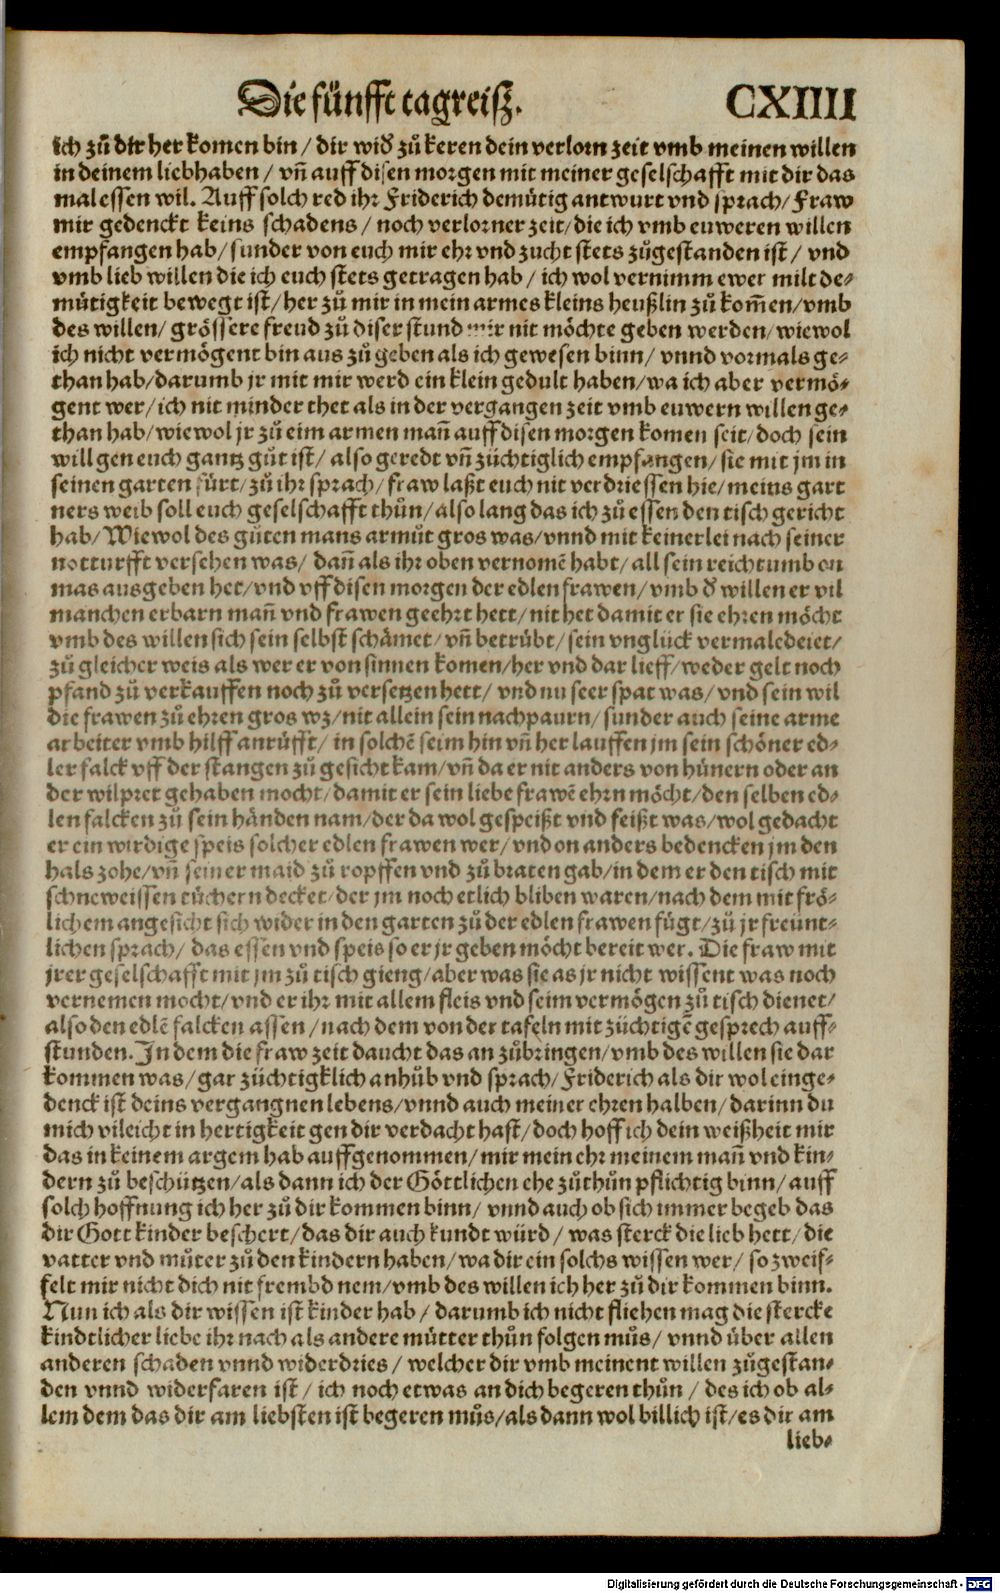 Die fünfft tagreiß. CXIIII
ich zů dir her komen bin / dir wid̕ zů keren dein verlorn zeit vmb meinen willen
in deinem liebhaben / vñ auff disen morgen mit meiner geselschafft mit dir das
mal essen wil. Auff solch red ihr Friderich demütig antwurt vnd sprach / Fraw
mir gedenckt keins schadens / noch verlorner zeit / die ich vmb euweren willen
empfangen hab / sunder von euch mir ehr vnd zucht stets zůgestanden ist / vnd
vmb lieb willen die ich euch stets getragen hab / ich wol vernimm ewer milt de⸗
mütigkeit bewegt ist / her zů mir in mein armes kleins heußlin zů kom̃en / vmb
des willen / grössere freud zů diser stund mir nit möchte geben werden / wiewol
ich nicht vermögent bin aus zů geben als ich gewesen binn / vnnd vormals ge⸗
than hab / darumb jr mit mir werd ein klein gedult haben / wa ich aber vermö⸗
gent wer / ich nit minder thet als in der vergangen zeit vmb euwern willen ge⸗
than hab / wiewol jr zů eim armen mañ auff disen morgen komen seit / doch sein
will gen euch gantz gůt ist / also geredt vñ züchtiglich empfangen / sie mit jm in
seinen garten fůrt / zů ihr sprach / fraw laßt euch nit verdriessen hie / meins gart
ners weib soll euch geselschafft thůn / also lang das ich zů essen den tisch gericht
hab / Wiewol des gůten mans armůt gros was / vnnd mit keinerlei nach seiner
notturfft versehen was / dañ als ihr oben vernomē habt / all sein reichtumb on
mas ausgeben het / vnd vff disen morgen der edlen frawen / vmb d̕ willen er vil
manchen erbarn mañ vnd frawen geehrt hett / nit het damit er sie ehren möcht
vmb des willen sich sein selbst schämet / vñ betrübt / sein vnglück vermaledeiet /
zů gleicher weis als wer er von sinnen komen / her vnd dar lieff / weder gelt noch
pfand zů verkauffen noch zů versetzen hett / vnd nu seer spat was / vnd sein wil
die frawen zů ehren gros wz / nit allein sein nachpaurn / sunder auch seine arme
arbeiter vmb hilff anrůfft / in solchē seim hin vñ her lauffen jm sein schöner ed⸗
ler falck vff der stangen zů gesicht kam / vñ da er nit anders von hünern oder an
der wilpret gehaben mocht / damit er sein liebe frawē ehrn möcht / den selben ed⸗
len falcken zů sein händen nam / der da wol gespeißt vnd feißt was / wol gedacht
er ein wirdige speis solcher edlen frawen wer / vnd on anders bedencken jm den
hals zohe / vñ seiner maid zů ropffen vnd zů braten gab / in dem er den tisch mit
schneweissen tüchern decket / der jm noch etlich bliben waren / nach dem mit frö⸗
lichem angesicht sich wider in den garten zů der edlen frawen fügt / zů jr freünt⸗
lichen sprach / das essen vnd speis so er jr geben möcht bereit wer. Die fraw mit
jrer geselschafft mit jm zů tisch gieng / aber was sie as jr nicht wissent was noch
vernemen mocht / vnd er ihr mit allem fleis vnd seim vermögen zů tisch dienet /
also den edlē falcken assen / nach dem von der tafeln mit züchtigē gesprech auff⸗
stunden. In dem die fraw zeit daucht das an zůbringen / vmb des willen sie dar
kommen was / gar züchtigklich anhůb vnd sprach / Friderich als dir wol einge⸗
denck ist deins vergangnen lebens / vnnd auch meiner ehren halben / darinn du
mich vileicht in hertigkeit gen dir verdacht hast / doch hoff ich dein weißheit mir
das in keinem argem hab auffgenommen / mir mein ehr meinem mañ vnd kin⸗
dern zů beschützen / als dann ich der Göttlichen ehe zůthůn pflichtig binn / auff
solch hoffnung ich her zů dir kommen binn / vnnd auch ob sich immer begeb das
dir Gott kinder beschert / das dir auch kundt würd / was sterck die lieb hett / die
vatter vnd můter zů den kindern haben / wa dir ein solchs wissen wer / so zweif⸗
felt mir nicht dich nit frembd nem / vmb des willen ich her zů dir kommen binn.
Nun ich als dir wissen ist kinder hab / darumb ich nicht fliehen mag die stercke
kindtlicher liebe ihr nach als andere můtter thůn folgen můs / vnnd über allen
anderen schaden vnnd widerdries / welcher dir vmb meinent willen zůgestan⸗
den vnnd widerfaren ist / ich noch etwas an dich begeren thůn / des ich ob al⸗
lem dem das dir am liebsten ist begeren můs / als dann wol billich ist / es dir am
lieb⸗
Digitalisierung gefördert durch die Deutsche Forschungsgemeinschaft - DFG